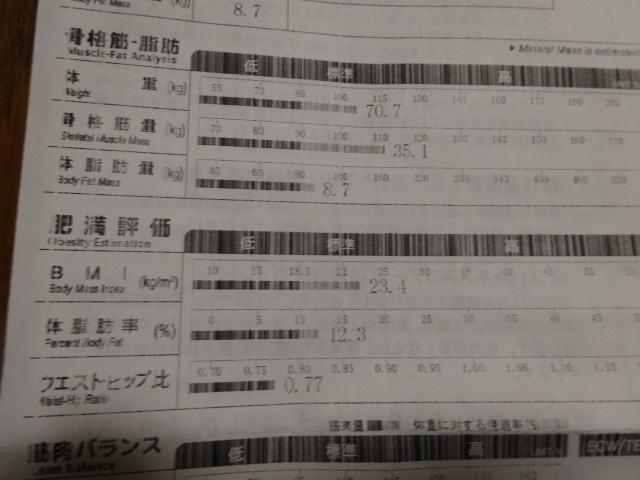 8.7
骨格筋・脂肪
Muscle-Fat Analysis
▶ Mineral Mass is estimated
低 標準 高
体重 (kg)
Weight
55 70 85 100 115 130 145 160 175 190
70.7
骨格筋量 (kg)
Skeletal Muscle Mass
70 80 90 100 110 120 130 140 150 160 170
35.1
体脂肪量 (kg)
Body Fat Mass
40 60 80 100 160 220 280 340 400 460 520
8.7
肥満評価
Obesity Estimation
低 標準 高
BMI (kg/m²)
Body Mass Index
10 15 18.5 22 25 30 35 40 45 50
23.4
体脂肪率 (%)
Percent Body Fat
0 5 10 15 20 25 30 35 40 45
12.3
ウエストヒップ比
Waist-Hip Ratio
0.70 0.75 0.80 0.85 0.90 0.95 1.00 1.05 1.10 1.15
0.77
筋肉量
筋肉バランス
Lean Balance
低 標準 高
ECW/TB